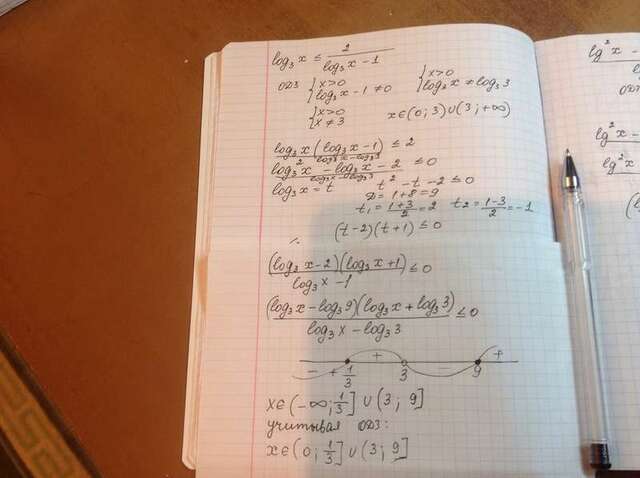 log₃x ≤ 2/(log₃x - 1)
ОДЗ {x>0 {x>0
{log₃x - 1 ≠ 0 {log₃x ≠ log₃3
{x>0
{x ≠ 3 x∈(0; 3)∪(3; +∞)
log₃x(log₃x - 1) ≤ 2
log₃x - log₃3
log₃²x - log₃x - 2 ≤ 0
log₃x - log₃3
log₃x = t t² - t - 2 ≤ 0
D = 1+8 = 9
t₁ = (1+3)/2 = 2 t₂ = (1-3)/2 = -1
(t-2)(t+1) ≤ 0
(log₃x - 2)(log₃x + 1)/(log₃x - 1) ≤ 0
(log₃x - log₃9)(log₃x + log₃3)/(log₃x - log₃3) ≤ 0
- + 1/3 + 3 - 9 +
x∈(-∞; 1/3]∪(3; 9]
учитывая ОДЗ:
x∈(0; 1/3]∪(3; 9]
lg²x -
ОДЗ
lg²x -
lg²x